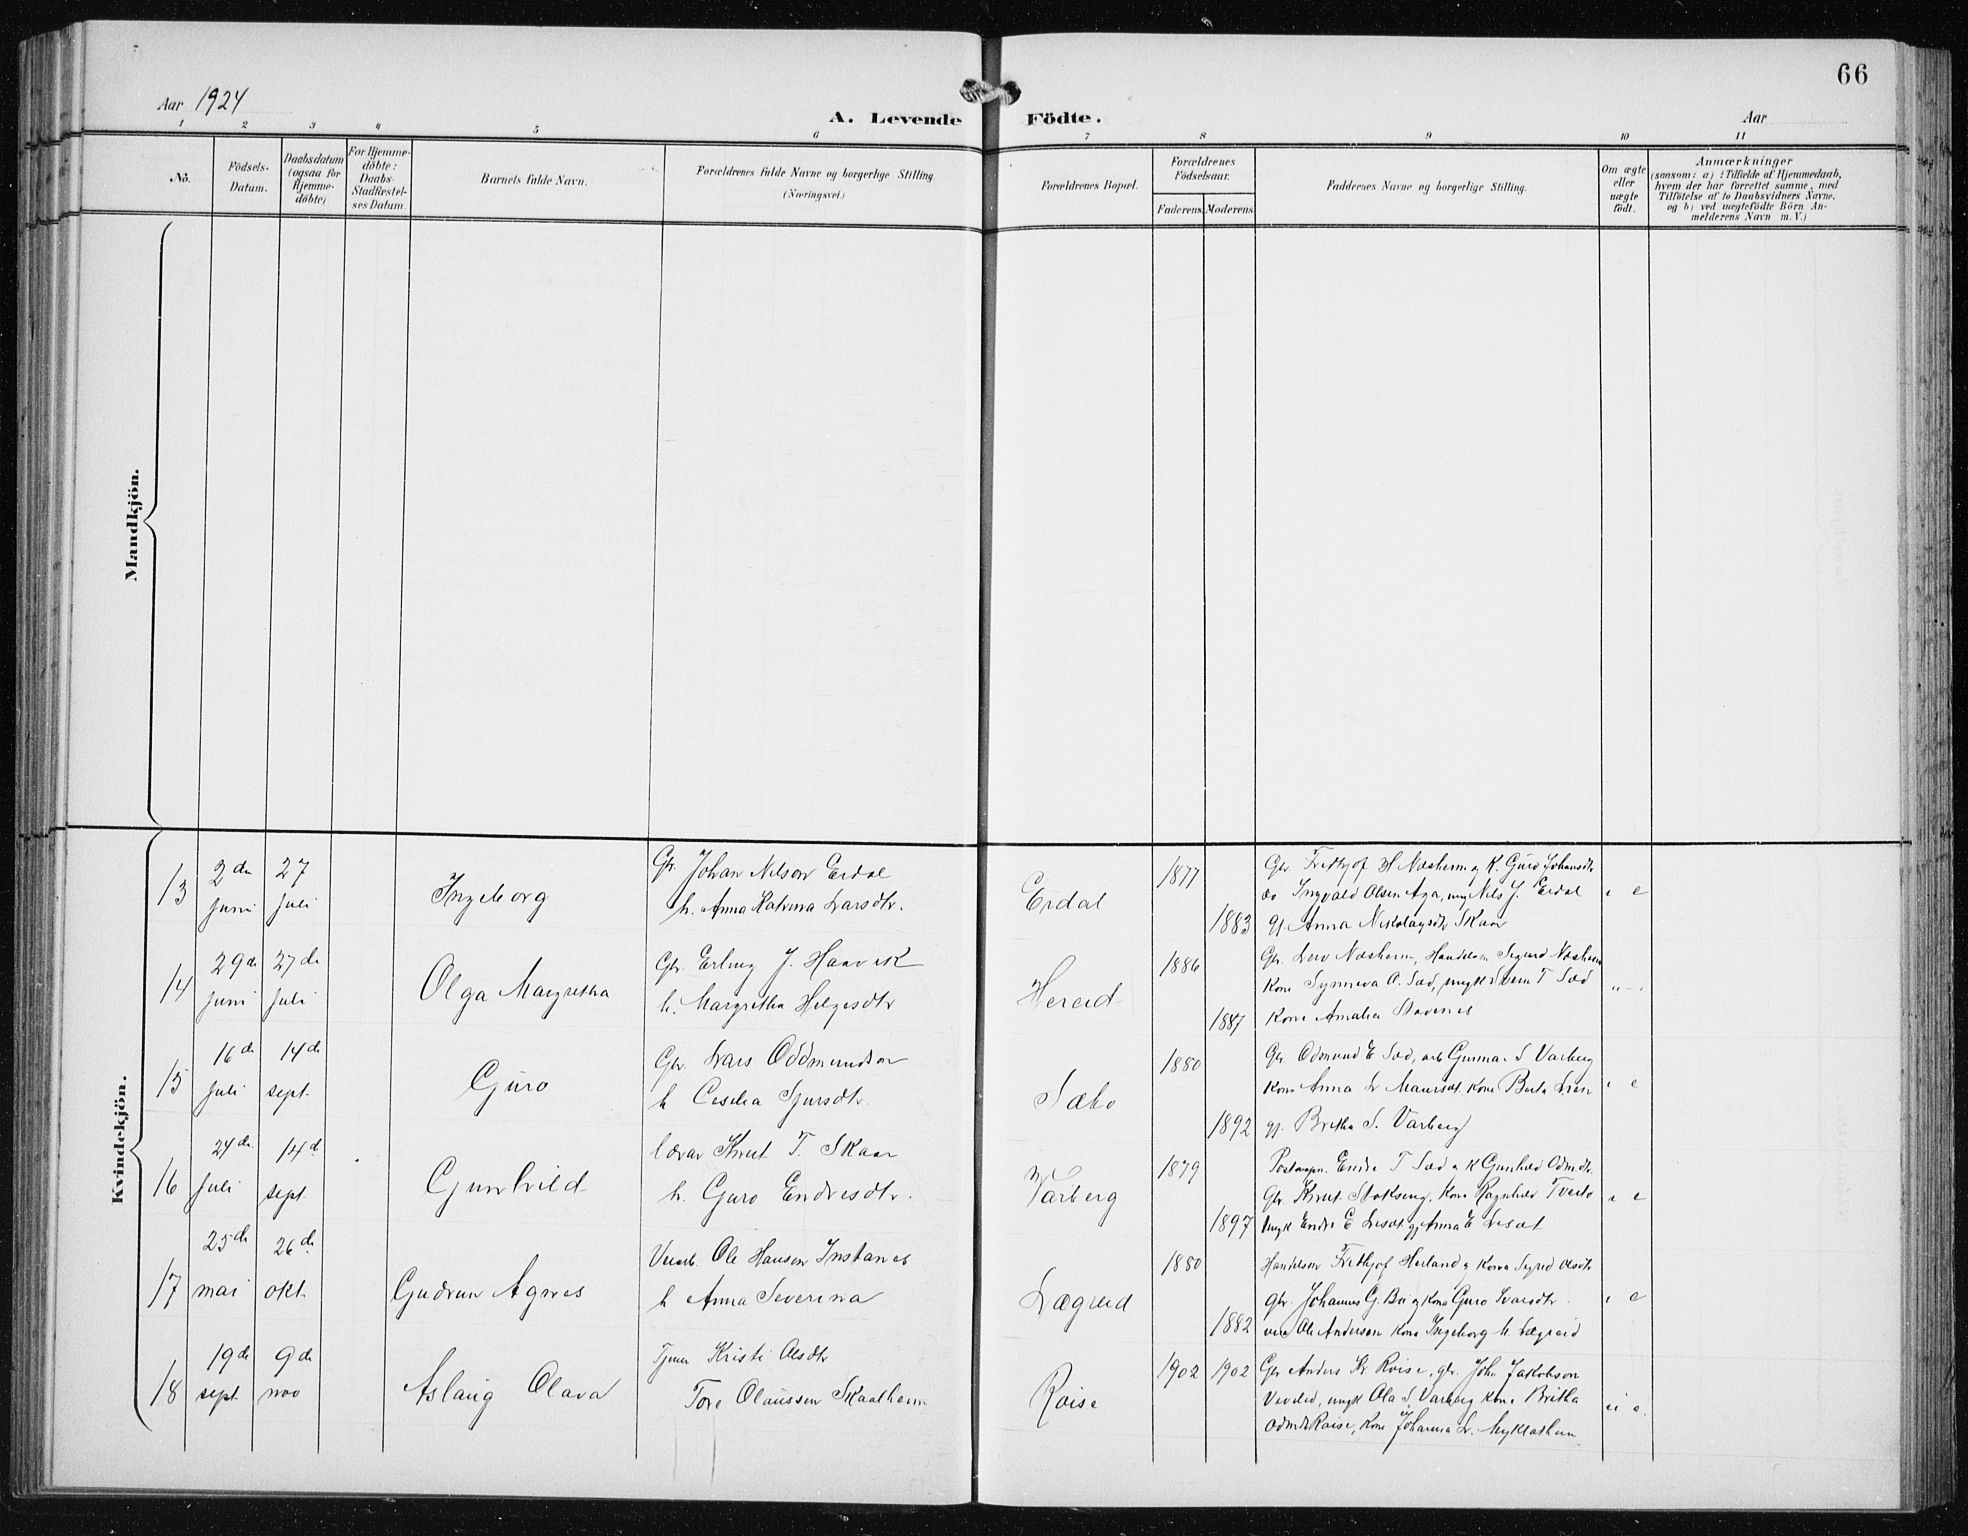 66
Aar 1924
A. Levende Födte.
Aar
1 2 3 4 5 6 7 8 9 10 11
No.
Födsels-
Datum.
Daabsdatum
(ogsaa for
Hjemme-
döbte)
For Hjemme-
döbte:
Daabs-
Stadfæstel-
ses Datum.
Barnets fulde Navn.
Forældrenes fulde Navne og borgerlige Stilling.
(Næringsvei.)
Forældrenes Bopæl.
Forældrenes
Födselsaar.
Faderens
Moderens
Faddernes Navne og borgerlige Stilling.
Om ægte
eller
uægte
födt.
Anmærkninger
(saasom: a) i Tilfælde af Hjemmedaab,
hvem der har forrettet samme, med
Tilföielse af to Daabsvidners Navne,
og b) ved uægtefödte Börn An-
melderens Navn m. V.)
Mandkjön.
Kvindekjön.
13
2den juni
27 juli
Ingeborg
Gbr. Johan Nilson Erdal
h. Anna Katrina Larsdtr.
Erdal
1877
1883
Gbr Frithjof H Næsheim og K. Guro Johansdtr
do Ingvald Olsen Aga, ung Nils J. Erdal
gj. Anna Nikolaysdtr Skaar
e
14
29de juni
27de juli
Olga Margretha
Gbr. Erling J. Haavik
h. Margretha Helgesdtr
Hereid
1886
1887
Gbr. Næsheim, Handelsm Sigurd Næsheim
Kone Synneva O. Sæd, ungk Svein T Sæd
Kone Amalia
15
16de juli
14de sept.
Guro
Gbr. Lars Oddmundson
h Cecilia Sjursdtr.
Sæbo
1880
1892
Gbr. Odmund E Sæd, arb Gunnar S Varberg
Kone Anna L Kone Berta
gj. Britha S. Varberg
e
16
24de juli
14d sept
Gunhild
lærar Knut T. Skaar
h. Guro Endresdtr.
Varberg
1879
1897
Endre T Sæd og K Gunhild Odmdtr.
Gbr. Knut Kone Ragnhild Tveito
Ungk Endre E gj Anna E
e
17
25de mai
26de okt.
Gudrun Agnes
Ole Hansen Instanes
h Anna Severina
Lægreid
1880
1882
Handelsm Frithjof Herland og Kona Sigrid Olsdtr
Gbr. Johannes G. Bu og Kona Guro Ivarsdtr.
Ole Anderson Kona Ingeborg h. Lægreid
e
18
19de sept.
9de nov
Aslaug Olava
Tjener Kristi Olsdtr
Tore Olaussen Skaalheim
Røise
1902
1902
Gbr Anders Kr Røise, gbr. Joh. Jakobson
ungk Ola S. Varberg Kone Britha
Odmdtr Røise, Kone Johanna L. Myklathun